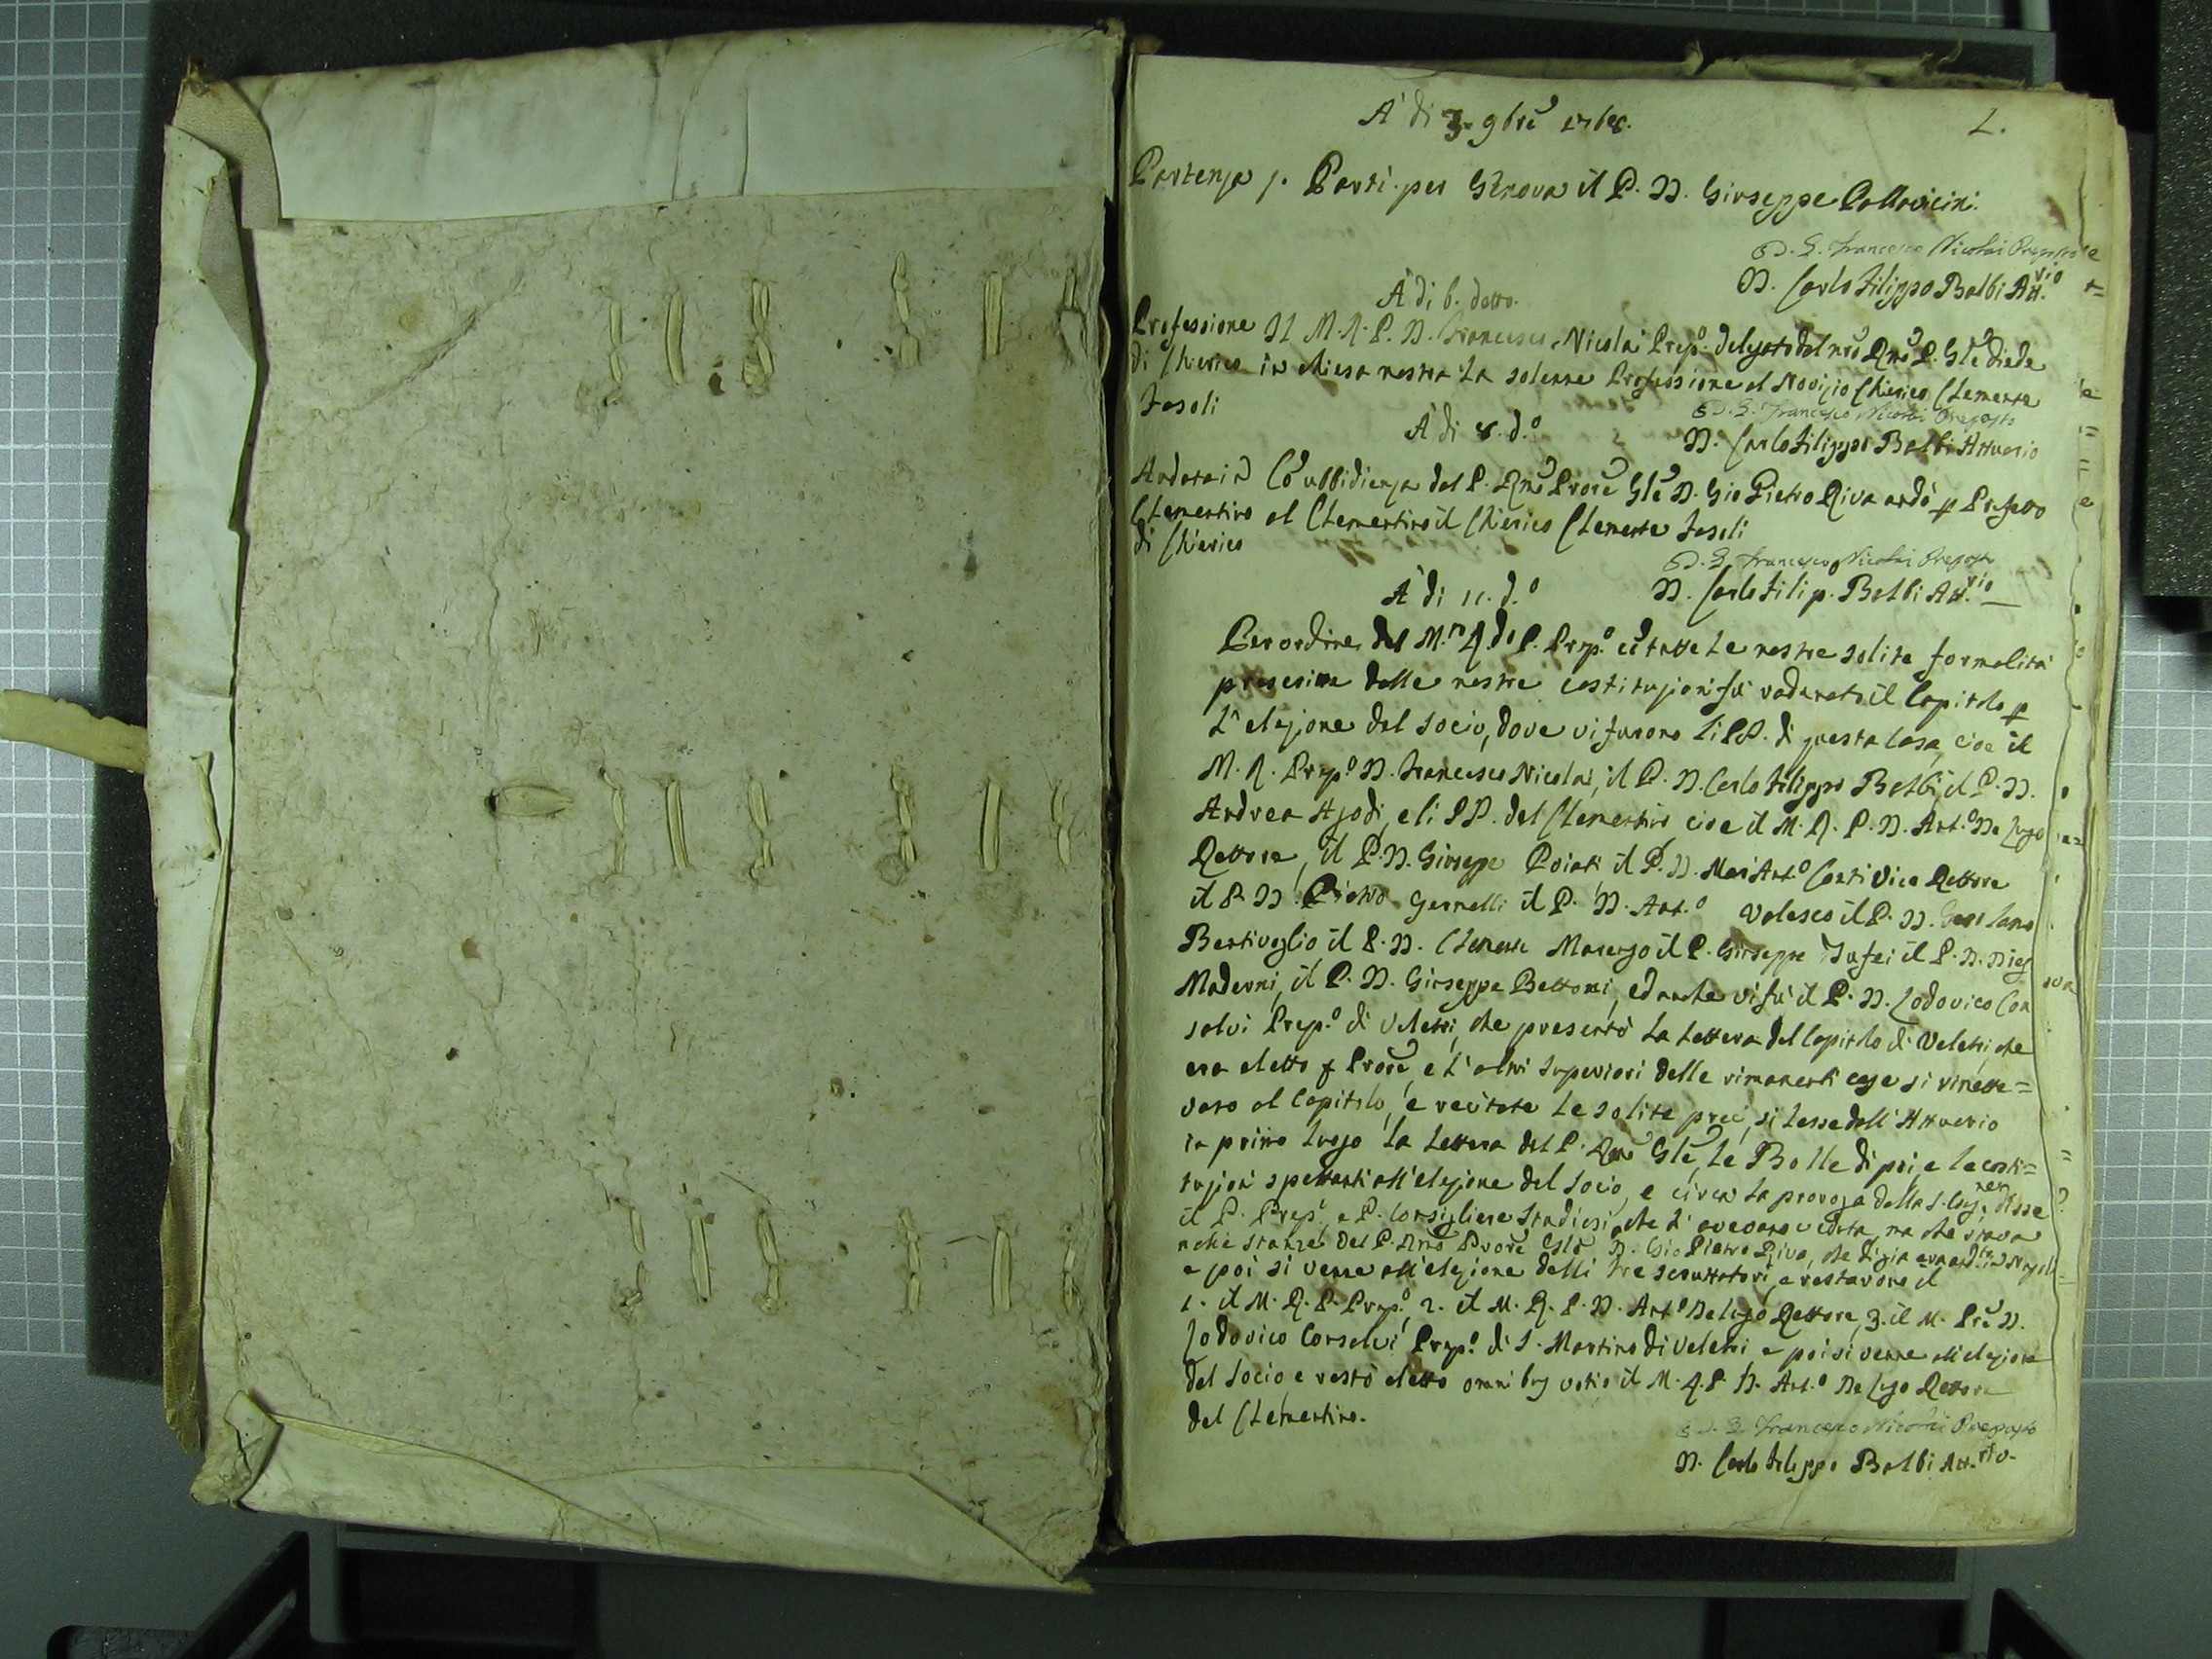 A di 3. 9bre 1768.
1.
Partenza p. Partì per Genova il P. D. Giuseppe Pallavicini.
D. G. Francesco Nicolai Preposto
D. Carlo Filippo Balbi Att.rio
A di 6. detto.
Professione Il M. R. P. D. Francesco Nicolai Prep.o delegato dal nro Rmo P. Gle diede
di Chierico in chiesa nostra la solenne Professione al Novizio Chierico Clemente
Fasoli
D. G. Francesco Nicolai Preposto
A di 8. d.o
D. Carlo Filippo Balbi Attuario
Andata in Co ubbidienza del P. Rmo Prore Gle D. Gio Pietro Riva andò p Prefetto
Clementino al Clementino il Chierico Clemente Fasoli
di Chierico
D. G. Francesco Nicolai Preposto
A di 11. d.o
D. Carlo Filip. Balbi Att.rio
Per ordine del M.to R.do P. Prep.o co tutte le nostre solite formalità
prescritte dalle nostre costituzioni fù radunato il Capitolo p
L'elezione del Socio, dove vi furono li PP. di questa Casa, cioè il
M. R. Prep.o D. Francesco Nicolai, il P. D. Carlo Filippo Balbi, il P. D.
Andrea, e li PP. del Clementino cioè il M. R. P. D. Ant.o De Lugo
Rettore, il P. D. Giuseppe Poiati il P. D. Marc Ant.o Conti Vice Rettore
il P. D. Pietro Gemelli il P. D. Ant.o Valesco il P. D.
Bentivoglio il P. D. Clemente Marenzo il P. Giuseppe il P. D.
Maderni, il P. D. Giuseppe Bettoni, ed anche vi fù il P. D. Lodovico Con
salvi Prep.o di Veletri, che presentò la lettera del Capitolo di Veletri che
era eletto p Prore, e l'altri Superiori delle rimanenti case si rimette=
vano al Capitolo, e recitate le solite preci, si lesse dall'Attuario
in primo luogo la lettera del P. Rmo Gle, le Bolle di poi, e le costi=
tuzioni spettanti all'elezione del Socio, e circa la proroga della S. Cong.ne disse
il P. Prep.o, e P. Consigliere Stadiesi che l'avevano veduta, ma che stava
nelle stanze del P. Rmo Prore Gle D. Gio Pietro Riva, che di già era
e poi si venne all'elezione delli tre scruttatori, e restarono il
1. il M. R. P. Prep.o, 2. il M. R. P. D. Ant.o De Lugo Rettore, 3. il M. Pre D.
Lodovico Consalvi Prep.o di S. Martino di Veletri e poi si venne all'elezione
del Socio, e restò eletto omnibus votis il M. R. P. D. Ant.o De Lugo Rettore
del Clementino.
D. G. Francesco Nicolai Preposto
D. Carlo Filippo Balbi Att.rio